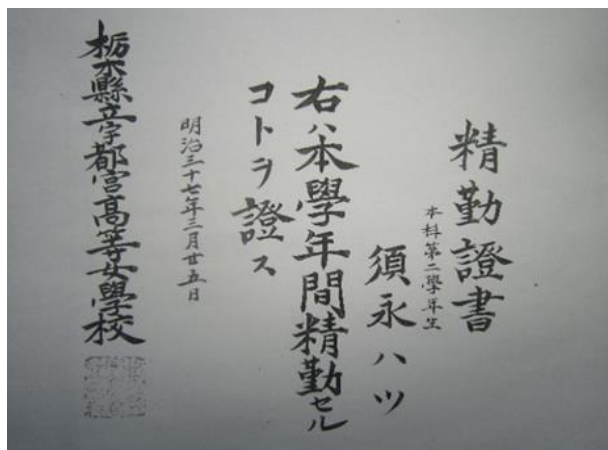 精勤證書
本科第二學年生
須永ハツ
右ハ本學年間精勤セル
コトヲ證ス
明治三十七年三月廿五日
栃木縣立宇都宮高等女學校